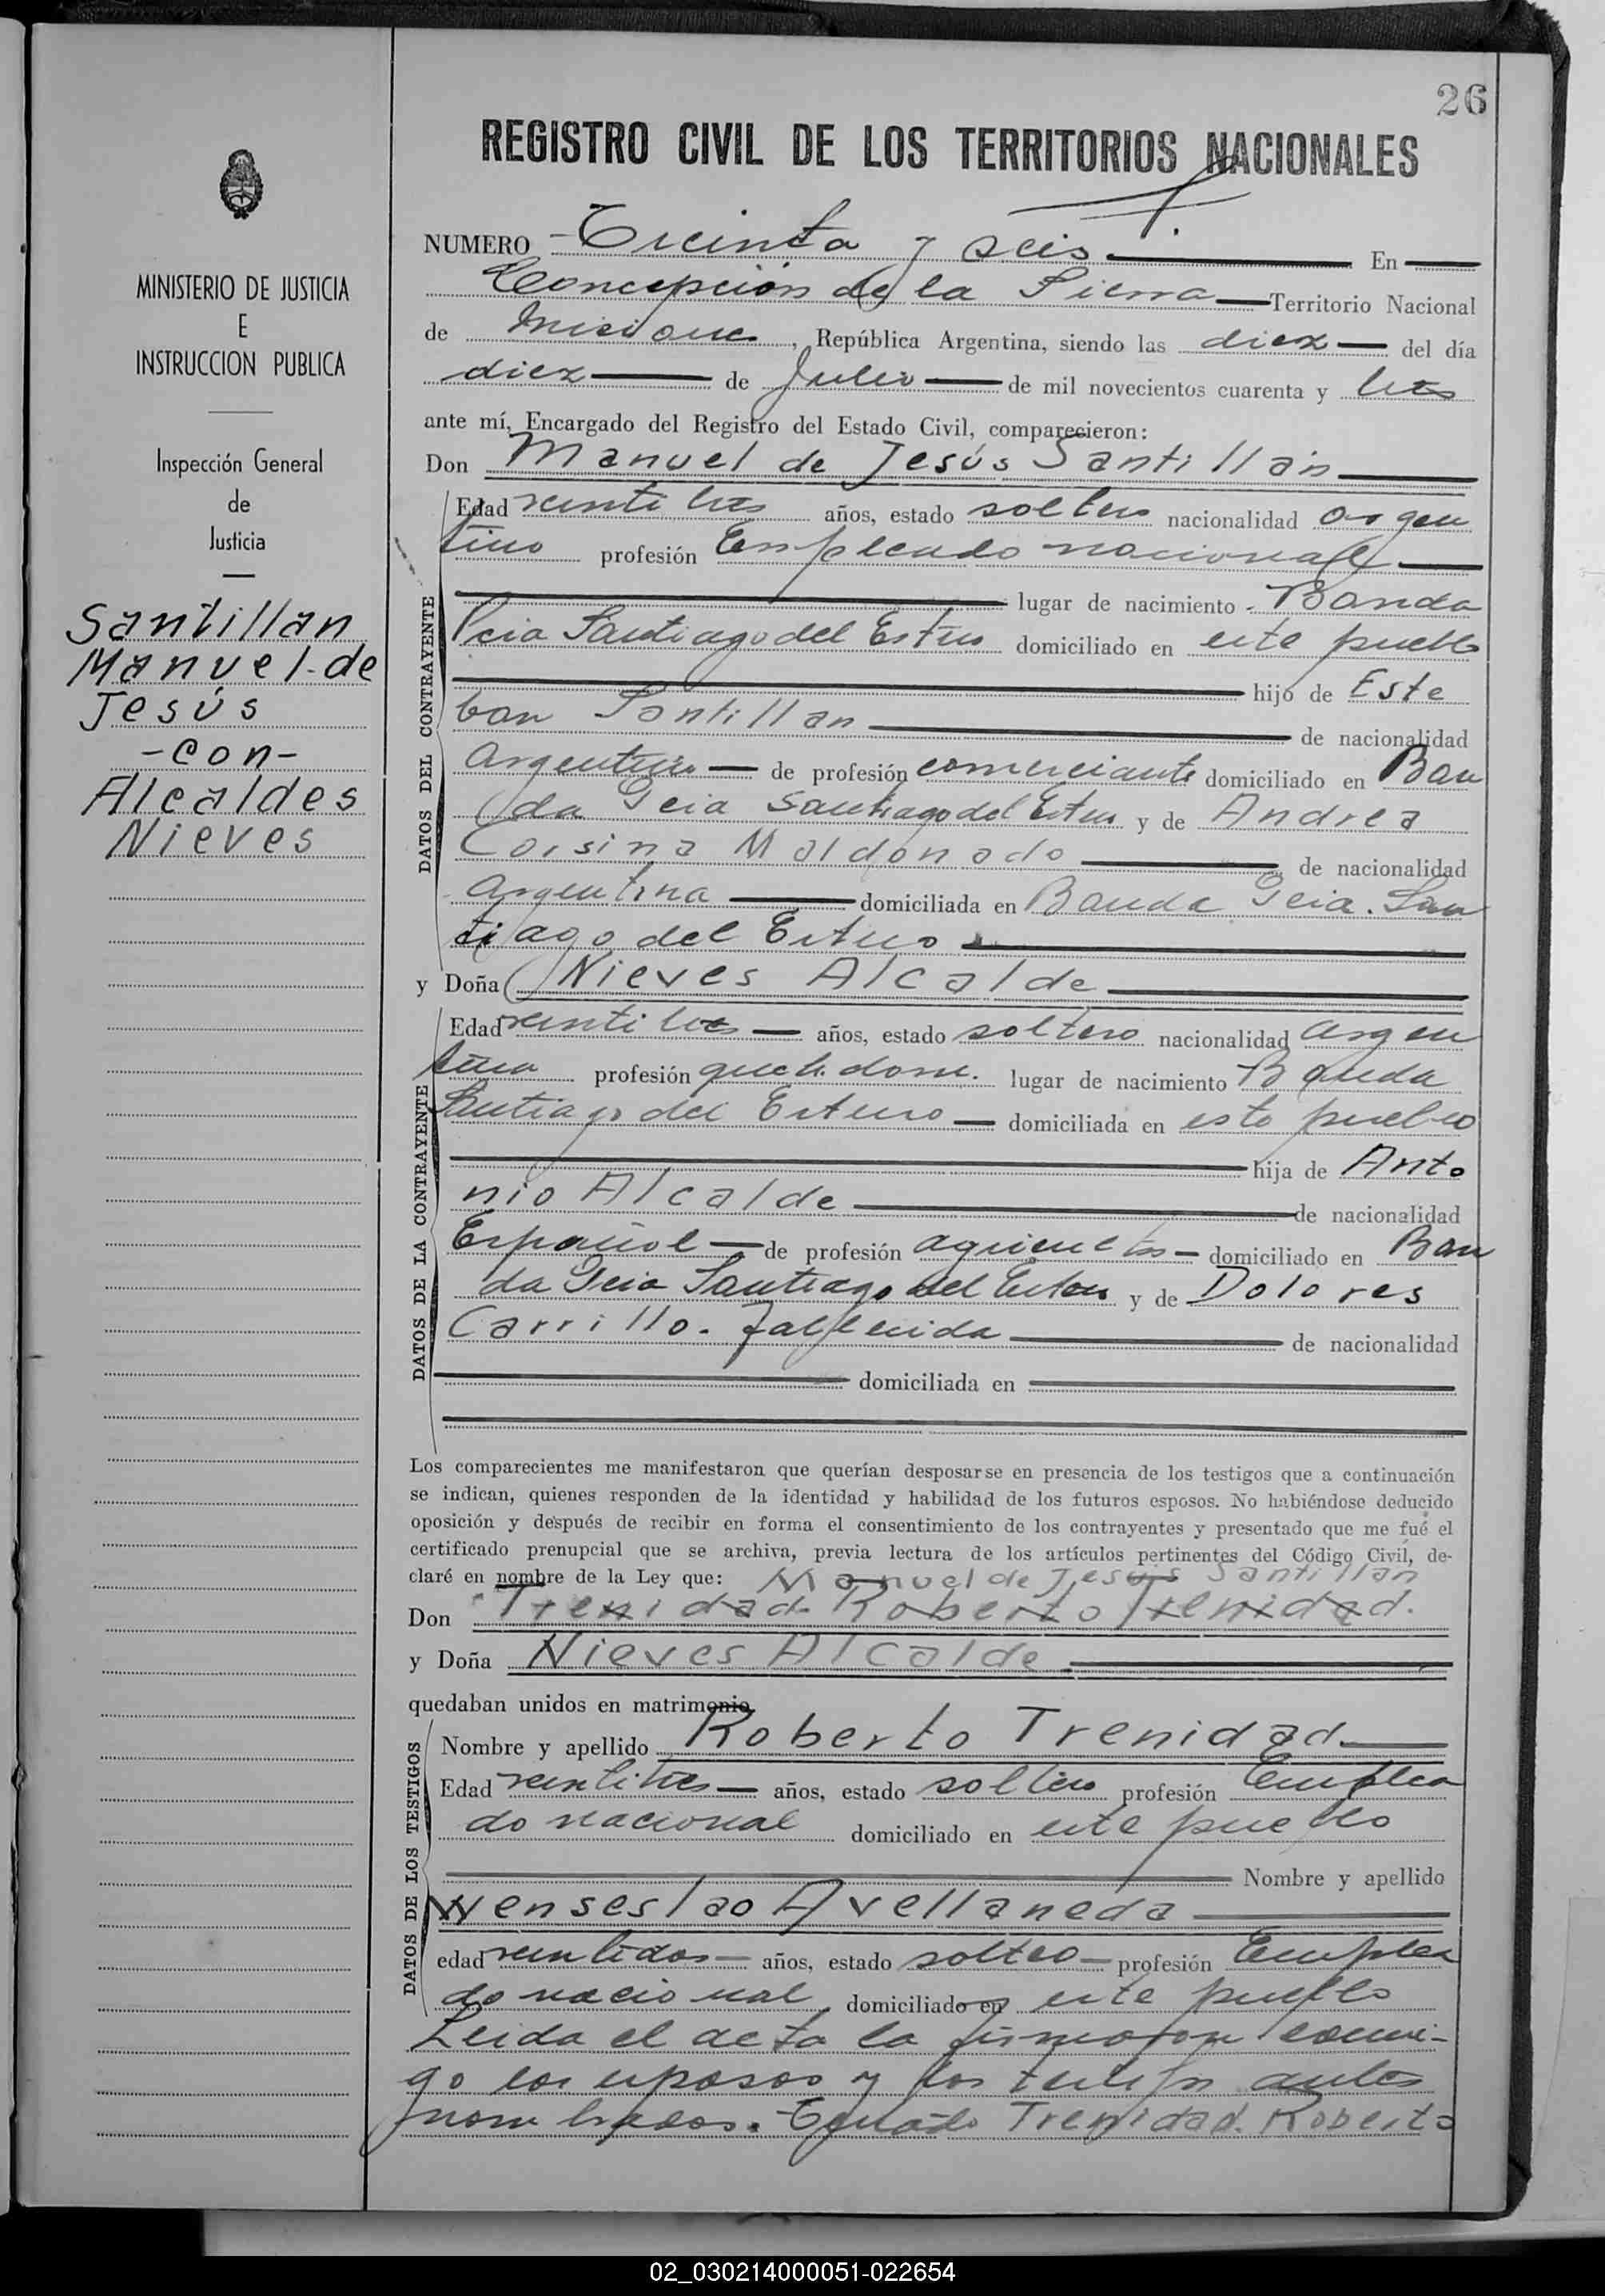 26
REGISTRO CIVIL DE LOS TERRITORIOS NACIONALES
MINISTERIO DE JUSTICIA
E
INSTRUCCION PUBLICA
Inspección General
de
Justicia
Santillan
Manuel de
Jesús
-con-
Alcaldes
Nieves
NUMERO Treinta y seis En
Concepción de la Sierra Territorio Nacional
de Misiones, República Argentina, siendo las diez del día
diez de Julio de mil novecientos cuarenta y tres
ante mí, Encargado del Registro del Estado Civil, comparecieron:
Don Manuel de Jesús Santillán
DATOS DEL CONTRAYENTE
Edad veintitres años, estado soltero nacionalidad argen
tino profesión Empleado nacional
lugar de nacimiento Banda
Pcia Santiago del Estero domiciliado en este pueblo
hijo de Este
ban Santillan de nacionalidad
Argentino de profesión comerciante domiciliado en Ban
da Pcia Santiago del Estero y de Andrea
Corsina Maldonado de nacionalidad
Argentina domiciliada en Banda Pcia. San
tiago del Estero
y Doña Nieves Alcalde
DATOS DE LA CONTRAYENTE
Edad veintitres años, estado soltero nacionalidad argen
tina profesión queh. dom. lugar de nacimiento Banda
Santiago del Estero domiciliada en este pueblo
hija de Anto
nio Alcalde de nacionalidad
Español de profesión agricultor domiciliado en Ban
da Pcia Santiago del Estero y de Dolores
Carrillo. fallecida de nacionalidad
domiciliada en
Los comparecientes me manifestaron que querían desposarse en presencia de los testigos que a continuación
se indican, quienes responden de la identidad y habilidad de los futuros esposos. No habiéndose deducido
oposición y después de recibir en forma el consentimiento de los contrayentes y presentado que me fué el
certificado prenupcial que se archiva, previa lectura de los artículos pertinentes del Código Civil, de-
claré en nombre de la Ley que: Manuel de Jesus Santillan
Don Trenidad Roberto Trenidad.
y Doña Nieves Alcalde
quedaban unidos en matrimonio
DATOS DE LOS TESTIGOS
Nombre y apellido Roberto Trenidad
Edad veintitres años, estado soltero profesión Emplea
do nacional domiciliado en este pueblo
Nombre y apellido
Wenseslao Avellaneda
edad veintidos años, estado soltero profesión Emplea
do nacional domiciliado en este pueblo
Leida el acta la firmaron conmi-
go los esposos y los testigos antes
nombrados. Trenidad. Roberto
02_030214000051-022654